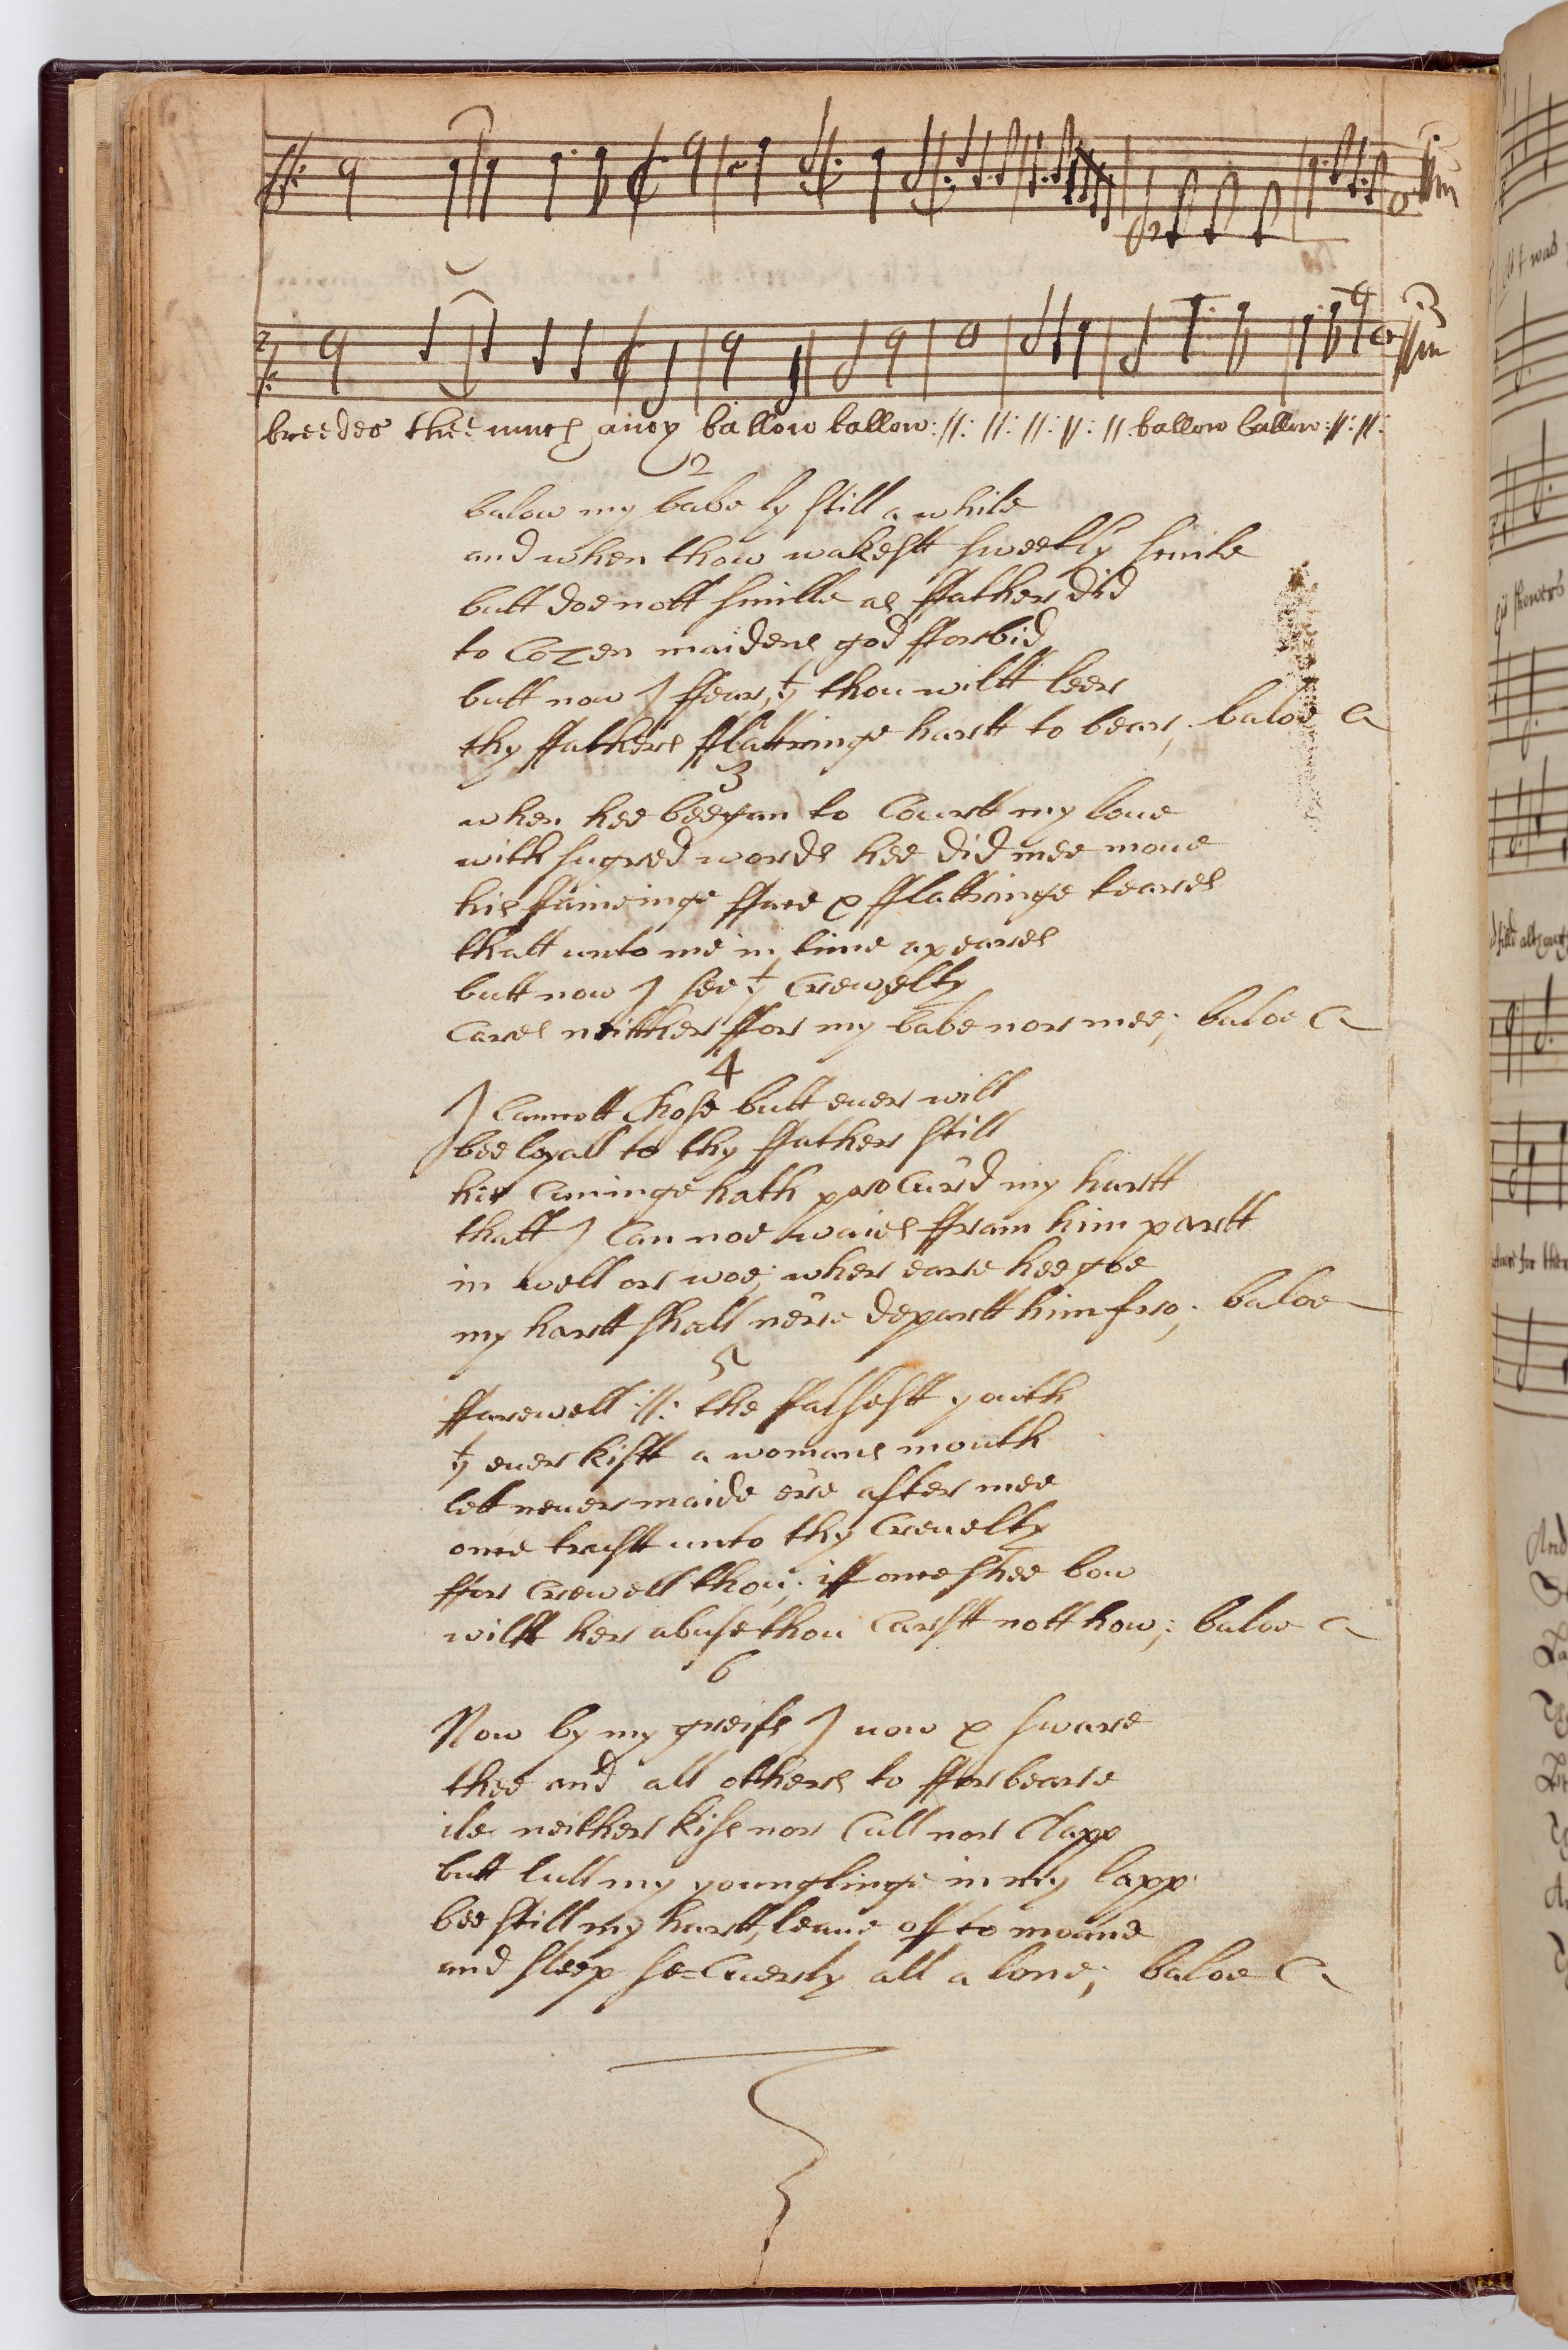 breedes thee much anoy ballow ballow :||: ||: ||: ||: || ballow ballow :||: ||:
2
balow my babe ly still a while
and when thow wakestt sweetly smile
butt doe nott smille as ffather did
to Cozen maidens god fforbid
butt now I ffear, yt thou willt leer
thy ffathers fflattringe hartt to bear; baloe &
3
when hee beegan to Courtt my loue
with sugred words hee did mee moue
his ffaineinge fface & fflattringe teares
thatt unto me in time apeares
butt now I see yt Crewelty
Cares neitther ffor my babe nor mee; baloe &
4
I Cannott Chose butt euer will
bee loyall to thy ffather still
his Cuninge hath procur'd my hartt
thatt I Can noe waies ffrom him partt
in well or woe; wher eare hee goe
my hartt shall ne're departt him fro; baloe
5
ffarewell :||: the ffalsestt youth
yt euer kistt a womans mouth
lett neuer maide ere after mee
once trustt unto thy Creuelty
ffor Crewell thou; iff once shee bow
willt her abuse thou Carstt nott how; baloe &
6
Now by my greifs I uow & sware
thee and all others to fforbeare
ile neither kiss nor Cull nor Clapp
butt lull my younglinge in my lapp
bee still my hartt, leaue off to moane
and sleep se=Cuerly all a lone; baloe &